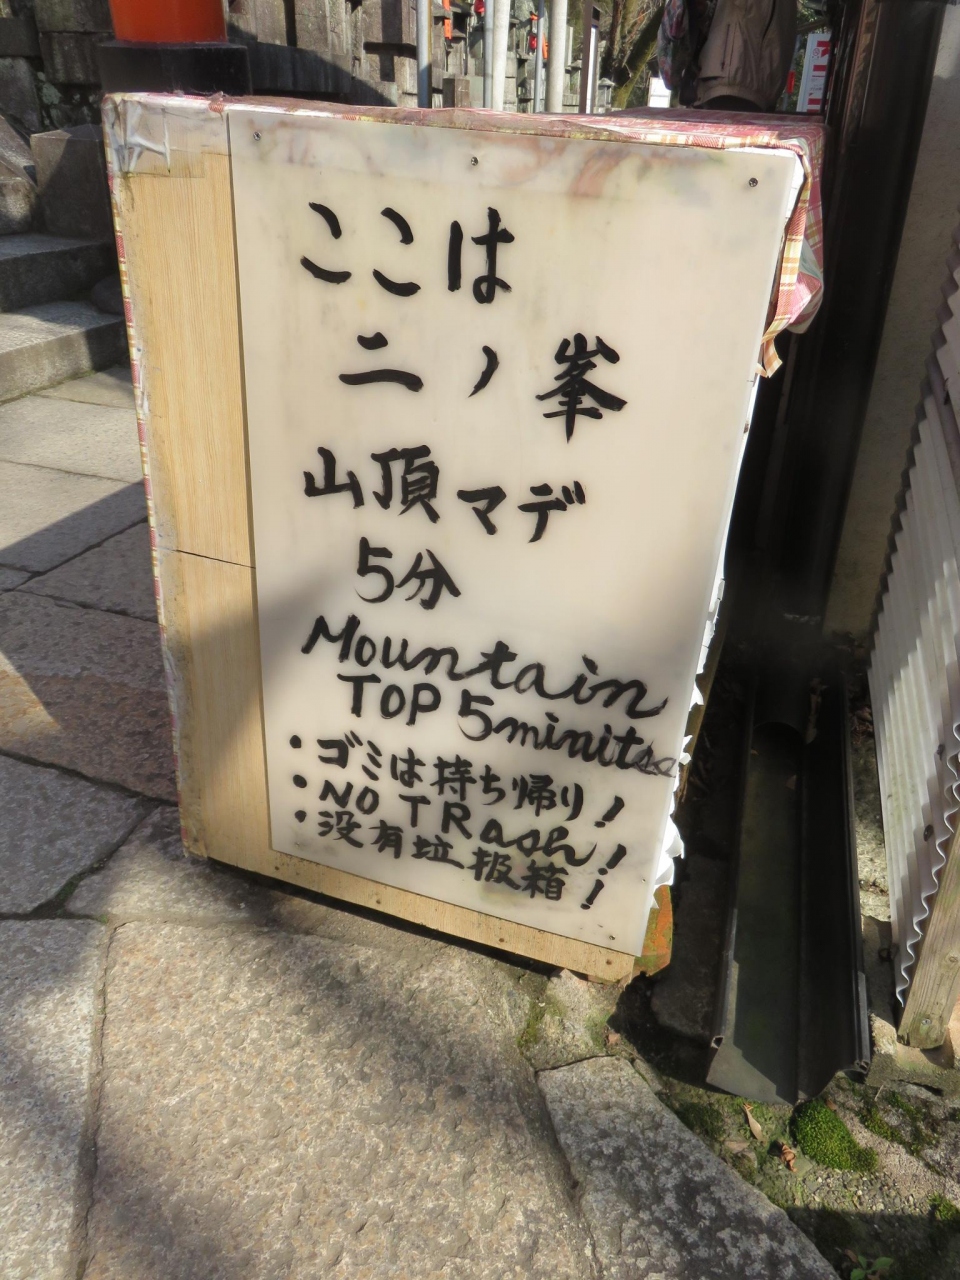 ここは
二ノ峯
山頂マデ
5分
Mountain
TOP 5minitse
・ゴミは持ち帰り!
・NO TRash!
・没有垃圾箱!